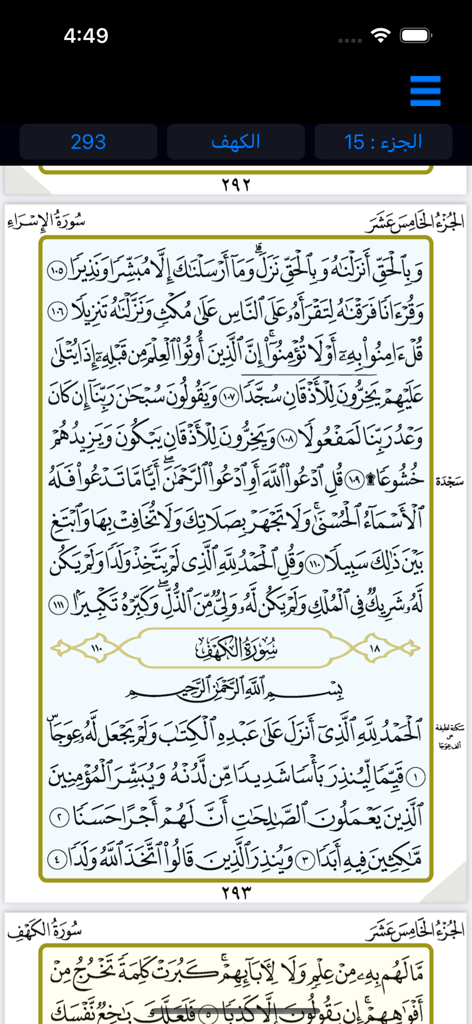 4:49
293
الكهف
الجزء : 15
٢٩٢
الجُزْءُ الخَامِسَ عَشَرَ
سُورَةُ الإِسْرَاءِ
وَبِالْحَقِّ أَنزَلْنَاهُ وَبِالْحَقِّ نَزَلَۗ وَمَآ أَرْسَلْنَاكَ إِلَّا مُبَشِّرًا وَنَذِيرًا ١٠٥
وَقُرْءَانًا فَرَقْنَاهُ لِتَقْرَأَهُۥ عَلَى النَّاسِ عَلَىٰ مُكْثٍ وَنَزَّلْنَاهُ تَنزِيلًا ١٠٦
قُلْ ءَامِنُوا۟ بِهِۦٓ أَوْ لَا تُؤْمِنُوٓا۟ۚ إِنَّ الَّذِينَ أُوتُوا۟ الْعِلْمَ مِن قَبْلِهِۦٓ إِذَا يُتْلَىٰ
عَلَيْهِمْ يَخِرُّونَ لِلْأَذْقَانِ سُجَّدًا ١٠٧ وَيَقُولُونَ سُبْحَٰنَ رَبِّنَآ إِن كَانَ
وَعْدُ رَبِّنَا لَمَفْعُولًا ١٠٨ وَيَخِرُّونَ لِلْأَذْقَانِ يَبْكُونَ وَيَزِيدُهُمْ
خُشُوعًا ۩ ١٠٩ قُلِ ادْعُوا۟ اللَّهَ أَوِ ادْعُوا۟ الرَّحْمَٰنَۖ أَيًّا مَّا تَدْعُوا۟ فَلَهُ
سَجْدَة
الْأَسْمَآءُ الْحُسْنَىٰۚ وَلَا تَجْهَرْ بِصَلَاتِكَ وَلَا تُخَافِتْ بِهَا وَابْتَغِ
بَيْنَ ذَٰلِكَ سَبِيلًا ١١٠ وَقُلِ الْحَمْدُ لِلَّهِ الَّذِى لَمْ يَتَّخِذْ وَلَدًا وَلَمْ يَكُن
لَّهُۥ شَرِيكٌ فِى الْمُلْكِ وَلَمْ يَكُن لَّهُۥ وَلِىٌّ مِّنَ الذُّلِّۖ وَكَبِّرْهُ تَكْبِيرًۢا ١١١
١٨ سُورَةُ الكَهْفِ ١١٠
بِسْمِ اللَّهِ الرَّحْمَٰنِ الرَّحِيمِ
الْحَمْدُ لِلَّهِ الَّذِىٓ أَنزَلَ عَلَىٰ عَبْدِهِ الْكِتَٰبَ وَلَمْ يَجْعَل لَّهُۥ عِوَجَاۜ
سكتة لطيفة
على
ألف عِوَجَا
١ قَيِّمًا لِّيُنذِرَ بَأْسًا شَدِيدًا مِّن لَّدُنْهُ وَيُبَشِّرَ الْمُؤْمِنِينَ
الَّذِينَ يَعْمَلُونَ الصَّٰلِحَٰتِ أَنَّ لَهُمْ أَجْرًا حَسَنًا ٢
مَّٰكِثِينَ فِيهِ أَبَدًا ٣ وَيُنذِرَ الَّذِينَ قَالُوا۟ اتَّخَذَ اللَّهُ وَلَدًا ٤
٢٩٣
الجُزْءُ الخَامِسَ عَشَرَ
سُورَةُ الكَهْفِ
مَّا لَهُم بِهِۦ مِنْ عِلْمٍ وَلَا لِءَابَآئِهِمْۚ كَبُرَتْ كَلِمَةً تَخْرُجُ مِنْ
أَفْوَٰهِهِمْۚ إِن يَقُولُونَ إِلَّا كَذِبًا ٥ فَلَعَلَّكَ بَٰخِعٌ نَّفْسَكَ